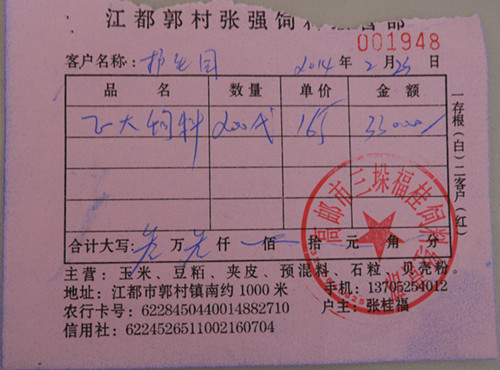 江都郭村张强饲料经营部
001948
客户名称: 2014 年 2 月 25 日
品 名 数量 单价 金额
飞大饲料 200代 165 33000/
合计大写: 叁 万 叁 仟 佰 拾 元 角 分
主营: 玉米、豆粕、夹皮、预混料、石粒、贝壳粉.
地址: 江都市郭村镇南约 1000 米 手机: 13705254012
农行卡号: 6228450440014882710 户主: 张桂福
信用社: 6224526511002160704
一存根(白)二客户(红)
高邮市三垛福桂饲料